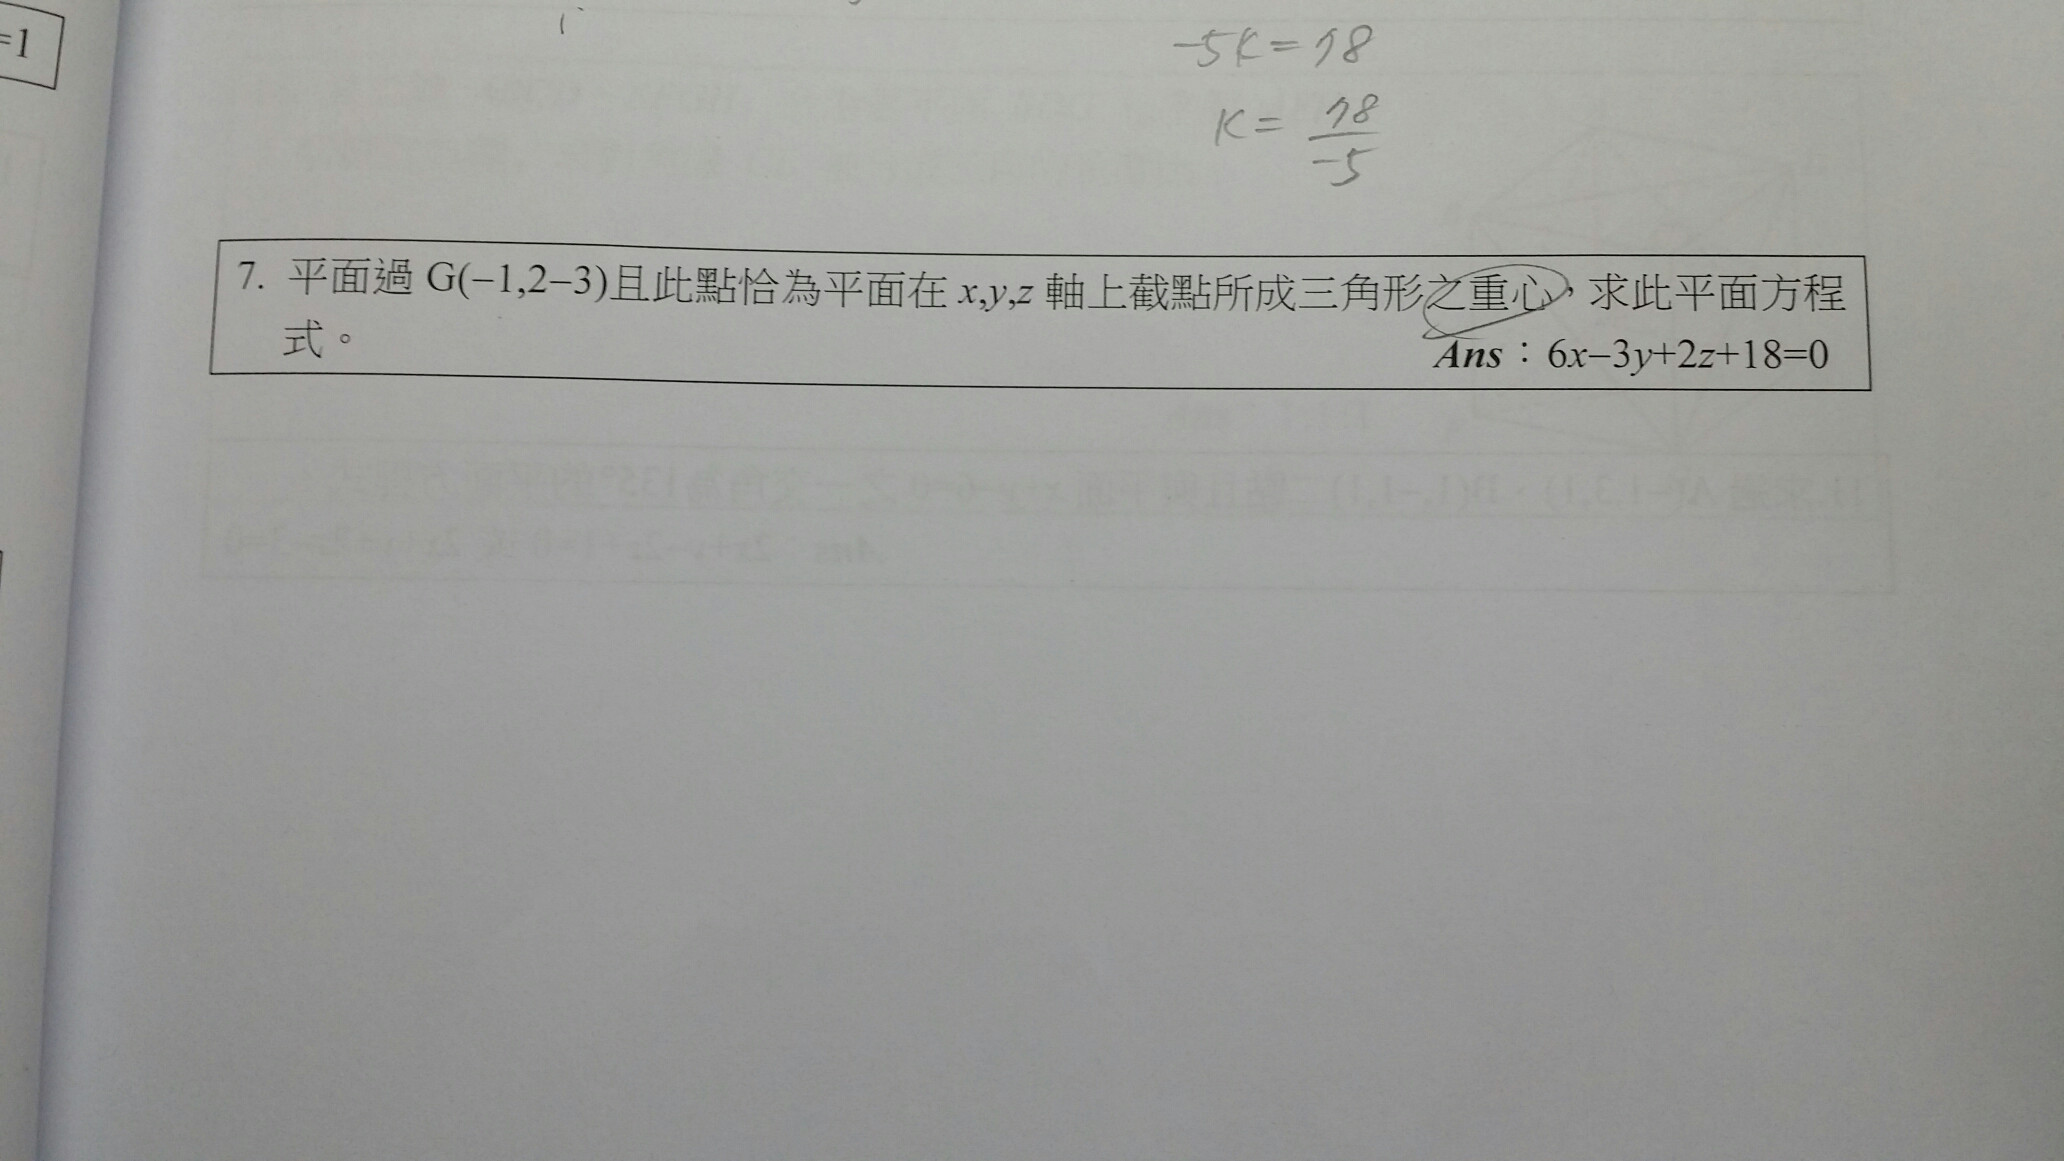 =1
-5K=18
K=18/-5
7. 平面過 G(−1,2−3)且此點恰為平面在 x,y,z 軸上截點所成三角形之重心，求此平面方程
式。
Ans：6x−3y+2z+18=0